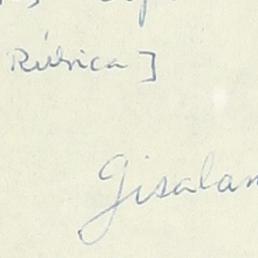 Rúbrica]
Gisalam